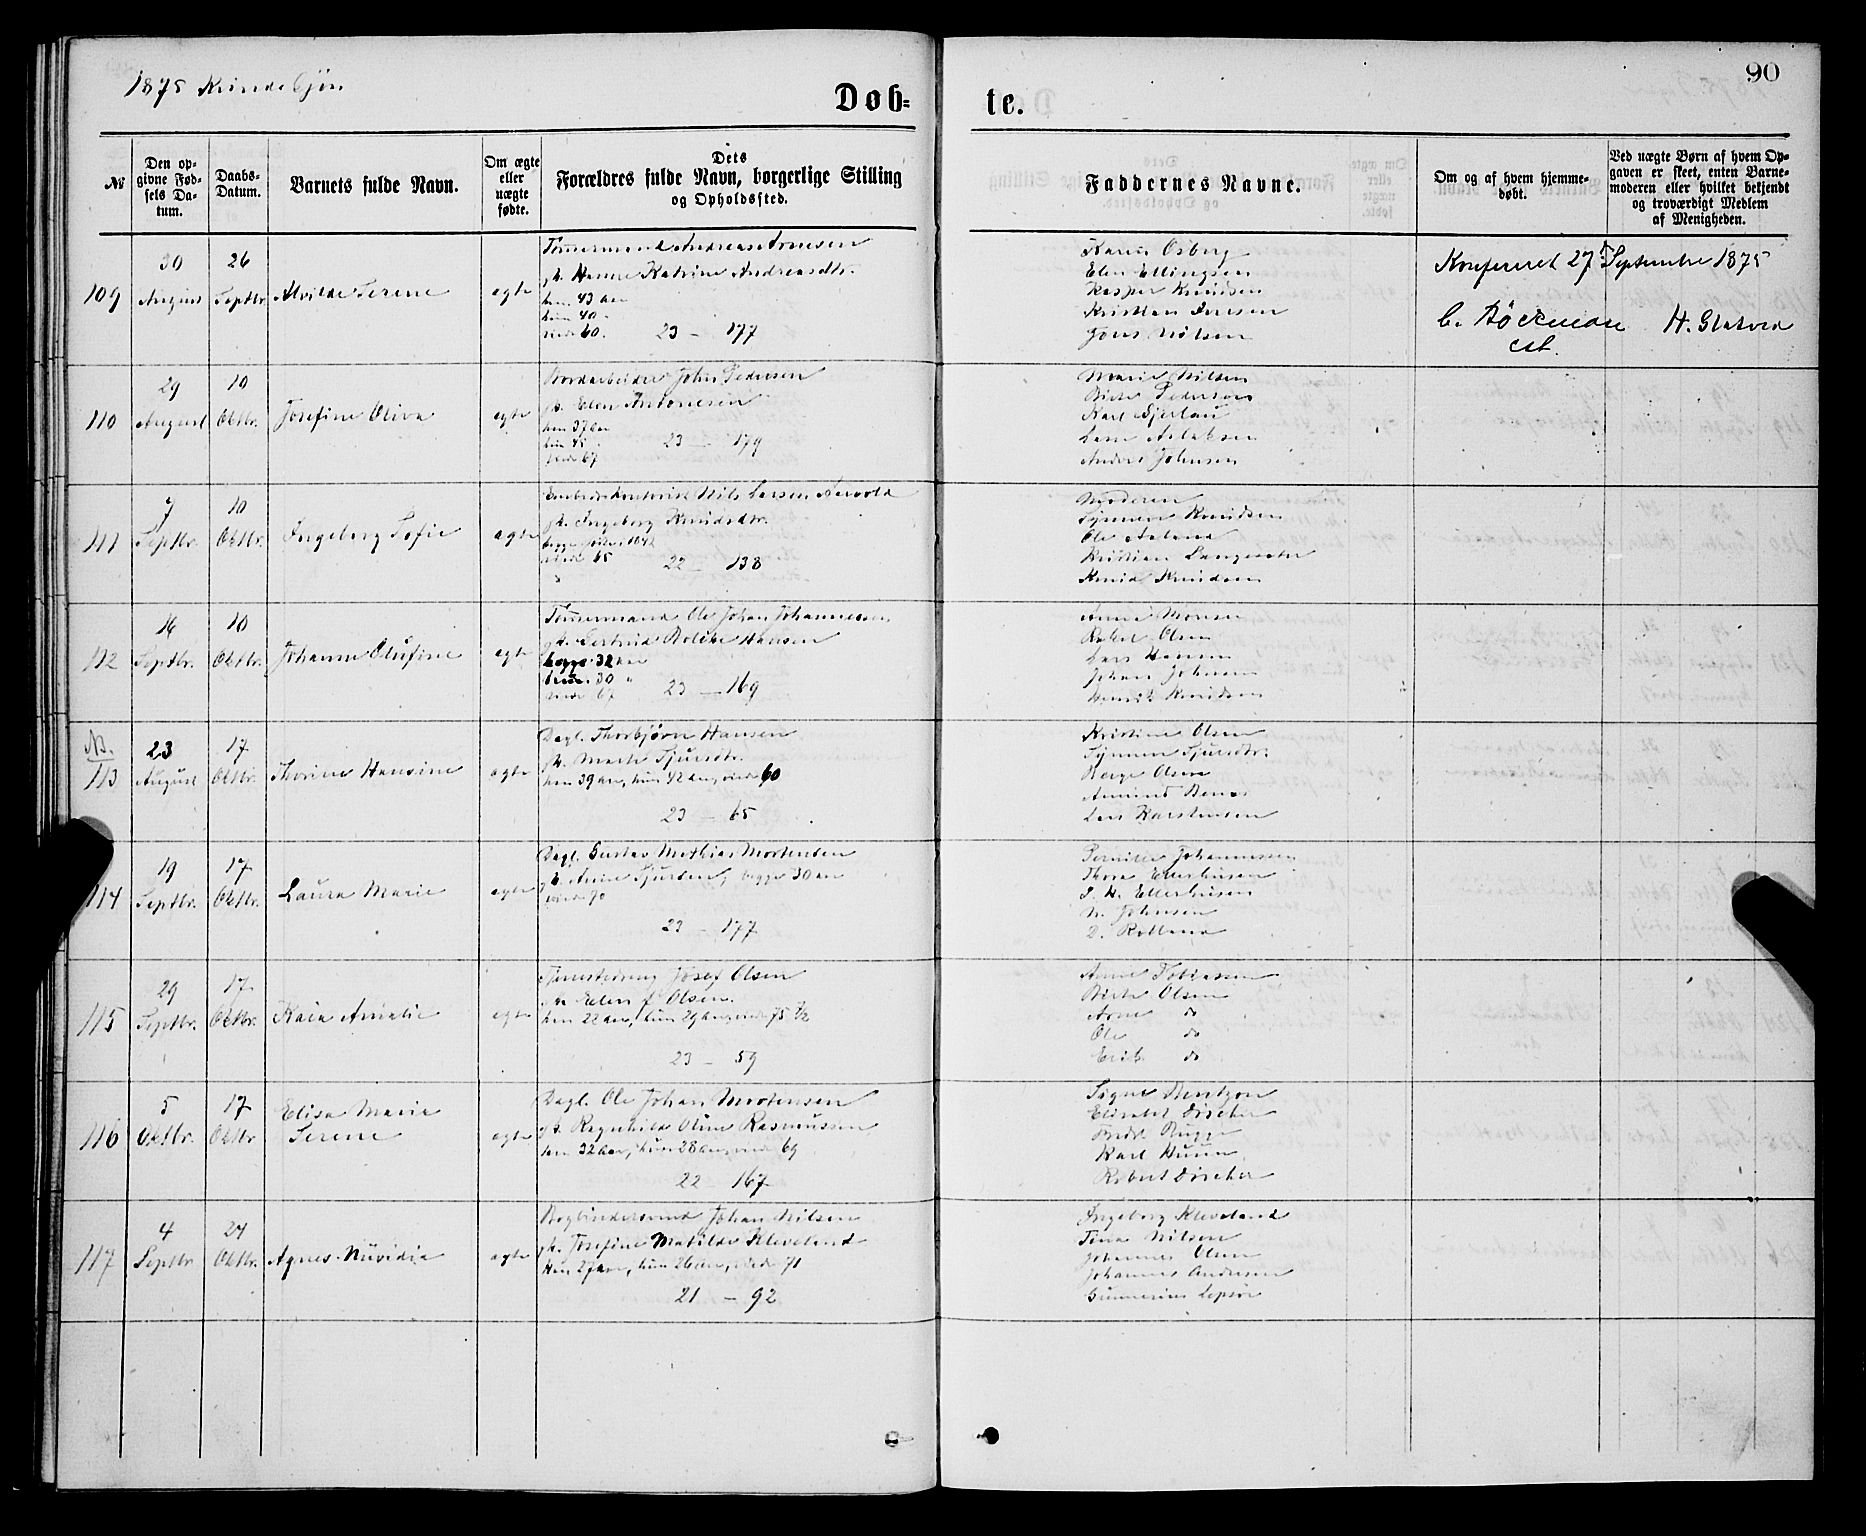 1875 Kvindekjøn
90
Døb=
te.
№
Den op=
givne Fød=
sels Da=
tum.
Daabs=
Datum.
Barnets fulde Navn.
Om ægte
eller
uægte
fødte.
Dets
Forældres fulde Navn, borgerlige Stilling
og Opholdssted.
Faddernes Navne.
Om og af hvem hjemme=
døbt.
Ved uægte Børn af hvem Op=
gaven er skeet, enten Barne=
moderen eller hvilket bekjendt
og troværdigt Medlem
af Menigheden.
109
30
August
26
Septbr.
Alvilde Serene
ægte
Tømermand Andreas Arnesen
Katrine Andreasdtr.
han 43 aar
hun 40
viede 60.
23 - 177
Karen Osberg
Elen Ellingsen
Kasper Knudsen
Kristian Iversen
Jøns Nilsen
Konfereret 27 September 1875
C. Böckman
cst.
110
29
August
10
Oktbr.
Josefine Oliva
egte
Johs Pedersen
gh. Elen Antonesen
han 37 aar
23 - 179
Marie Nilsen
Birte Pedersen
Karl Gjertsen
Lasse Aslaksen
Anders Johnsen
111
7
Septbr.
10
Oktbr.
Ingeborg Sofie
ægte
Nils Larsen
gh. Ingeborg Knudsdtr.
viede 65
22 - 138
Moderen
Synneve Knudsen
Ole
Kristian
Knud Knudsen
112
16
Septbr.
10
Oktbr.
Johanne Olufine
egte
Tømermand Ole Johan Johannessen
gh. Gertrud Bolette Hansen
32 aar
30 "
viede 67
23 - 169
Anne Monsen
Rakel Olsen
Lars Hansen
Johan Johnsen
Henrik Knudsen
NB.
113
23
August
17
Oktbr.
Thorine Hansine
ægte
Dagl. Thorbjørn Hansen
gh. Marte Sjursdtr.
han 39 aar, hun 42 aar, viede 60
23 - 65
Kristine Olsen
Synneve Sjursdtr.
Berge Olsen
Amund
Lars Karstensen
114
19
Septbr.
17
Oktbr.
Laura Marie
ægte
Dagl. Gustav Mathias Mortensen
gh. Anne Sjursen, begge 30 aar
viede 70
23 - 177
Pernille Johannessen
Thora Ellerhusen
Ellerhusen
N. Johnsen
D. Rolland
115
29
Septbr.
17
Oktbr.
Kaia Amalie
egte
Tjenestedreng Josef Olsen
gh. Elen J Olsen.
han 22 aar, hun 29 aar, viede 75 7/2
23 - 59
Anne Tobiassen
Birte Olsen
Arne do
Ole do
Erik do
116
5
Oktbr.
17
Oktbr.
Elisa Marie
Serene
ægte
Dagl. Ole Johan Mortensen
gh. Ragnhild Oline Rasmussen
han 32 aar, hun 28 aar, viede 69
22 - 167
Signe Mentzon
Elisabet Discher
Karl
Robert Discher
117
4
Septbr
24
Oktbr.
Agnes Nuvidia
ægte
Bogbindersvend Johan Nilsen
gh. Josefine Matilde Kleveland
Han 27 aar, hun 26 aar, viede 71
21 - 92
Ingeborg Kleveland
Tina Nilsen
Johannes Olsen
Johannes Andersen
Gunnerius Lepsøe